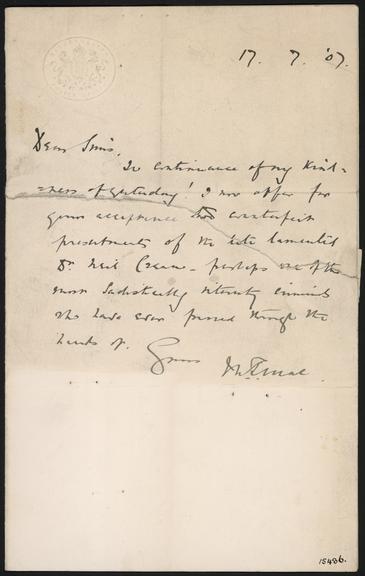 17. 7. '07.
Dear Sims,
In continuance of my kind=
=ness of yesterday! I now offer for
your acceptance two counterfeit
presentments of the late lamented
Dr Neil Cream – perhaps one of the
most Sadistically minded criminals
who have ever passed through the
hands of.
Yours
15486.